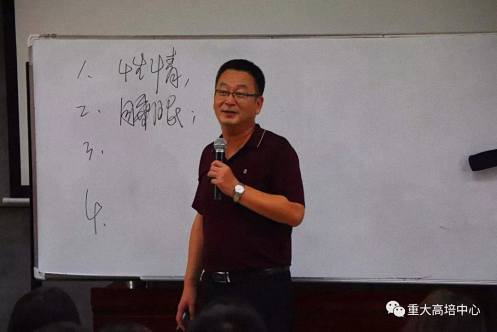 1. 性情,
2. 睡眠;
3.
4.
重大高培中心